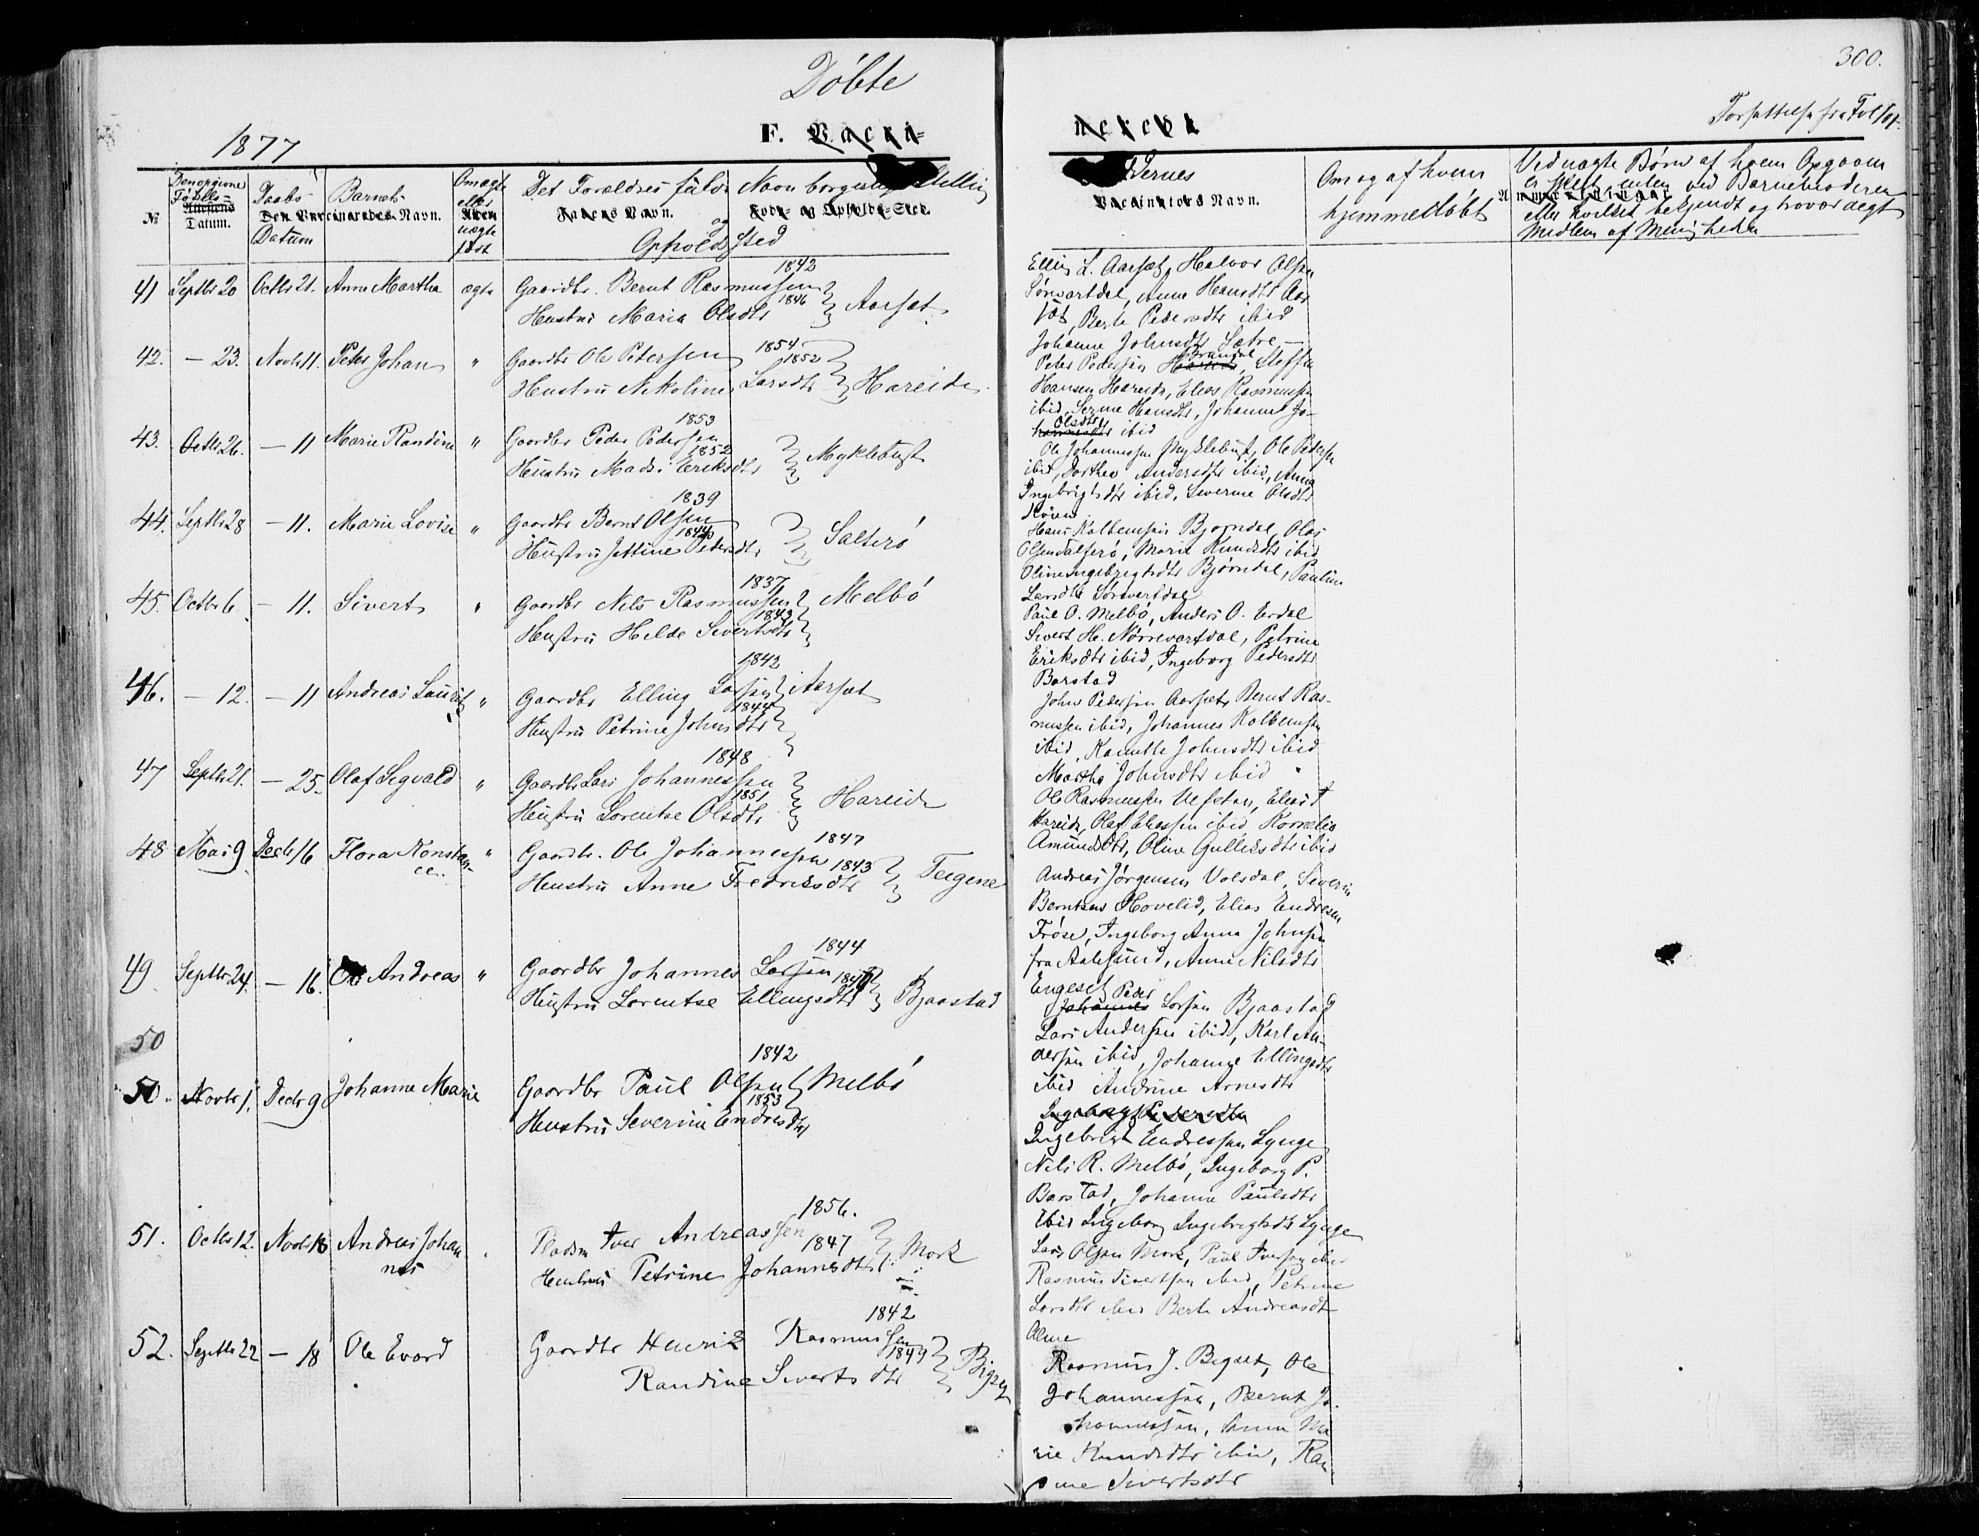 300.
Døbte
Fortsættelse fra Fol
1877
F. Vacci= nerede.
Den opgivne Fødsels- Datum.
Daabs- Datum
Barnets Navn.
№
Den Vaccineredes Navn.
Om ægte eller uægte født
Det Forældres fulde Navn borgerlige Stilling
og
Opholdssted
Faderens Navn.
Føde- og Opholds-Sted.
Faddernes
Vaccinateurs Navn.
Om og af hvem
hjemmedøbt
Ved uægte Børn af hvem Opgaven
er skeet, enten ved Barnemoderen
eller hvilket bekjendt og troværdigt
Medlem af Menigheden
Anmærkninger.
41 Septbr 20 Octbr 21. Anne Martha ægte Gaardbr. Bernt Rasmussen 1842
Hustru Maria Olsdtr 1846 Aarset
Elling L. Aarset, Halvor Olsen
Sørevartdal, Anne Hansdtr Aar
set, Berte Pedersdtr ibid
Johanne Johnsdtr Sætre
42. – 23. Novbr 11. Peter Johan " Gaardbr Ole Petersen 1854
Hustru Nikoline Larsdtr 1852 Hareide
Peter Pedersen Brandal, Steffen
Hansen Hareide, Elias Rasmussen
ibid, Serine Hansdtr, Johanne
Olsdtr ibid
43. Octbr 26. – 11 Marie Randine " Gaardbr Peder Pedersen 1853
Hustru Mads: Eriksdtr 1852 Myklebust
Ole Johannessen Myklebust, Ole Petersen
ibid, Dorthea Andersdtr ibid, Anna
Ingebrigtsdtr ibid, Severine Olsdtr
44. Septbr 28 – 11. Marie Lovise " Gaardbr Bernt Olsen 1839
Hustru Jettine Pedersdtr 1844 Salterø
Hans Kolbensen Bjørndal, Olas
Olsen Salterø, Marie Knudsdtr ibid
Oline Ingebrigtsdtr Bjørndal, Pauline
Larsdtr Sørevartdal
45. Octbr 6. – 11. Sivert " Gaardbr Nils Rasmussen 1837
Hustru Hilde Sivertsdtr 1843 Melbø
Paul O. Melbø, Anders O. Erdal
Sivert H. Nørrevartdal, Petrine
Eriksdtr ibid, Ingeborg Pedersdtr
Barstad
46. – 12. – 11 Andreas Laurits " Gaardbr Elling Larsen 1842
Hustru Petrine Johnsdtr 1844 Aarset
John Pedersen Aarset, Bernt Ras-
mussen ibid, Johannes Kolbensen
ibid, Kanutte Johnsdtr ibid
Martha Johnsdtr ibid
47 Septbr 21. – 25. Olaf Sigvald " Gaardbr Lars Johannessen 1848
Hustru Lorentse Olsdtr 1851 Hareide
Ole Rasmussen Ulstein, Elias
Hareide, Olaf Eliassen ibid Kornelia
Amundsdtr, Oline Gulleksdtr ibid
48 Mai 9. Decbr 16 Flora Konstan-
ce. " Gaardbr. Ole Johannessen 1847
Hustru Anne Fredriksdtr 1843 Teigene
Andreas Jørgensen Volsdal, Severin
Berntsen Hovelid, Elias Endresen
Frøse, Ingeborg Anna Johnsen
fra Aalesund, Anne Nilsdtr
Engeset
49. Septbr 24. – 16. Ole Andreas " Gaardbr Johannes Larsen 1844
Hustru Lorentse Ellingsdtr Bjaastad
Peder
Johannes Larsen Bjaastad
Lars Andersen ibid, Karl An-
dersen ibid, Johanne Ellingsdtr
ibid Andrine Arnesdtr
50
50. Novbr 1. Decbr 9 Johanne Marie Gaardbr Paul Olsen 1842
Hustru Severine Endresdtr 1853 Melbø
Ingeborg Pedersdtr
Ingebrigt Endressen Lynge
Nils R. Melbø, Ingeborg P.
Barstad, Johanne Paulsdtr
ibid Ingeborg Ingebrigtsdtr Lynge
51. Octbr 12. Novbr 18 Andreas Johan
nes Pladsm Iver Andreassen 1856.
Hustru Petrine Johannesdtr 1847 Mork
Lars Olsen Mork, Paul Iversen ibid
Rasmus Sivertsen ibid, Petrine
Larsdtr ibid Berte Andreasdtr
Alme
52. Septbr 22 – 18 Ole Evard Gaardbr Henrik Rasmussen 1842
Randine Sivertsdtr 1849 Bigset
Rasmus J. Bigset, Ole
Johannessen, Bernt Jo-
hannessen, Anne Ma
rie Knudsdtr ibid, Ran
dine Sivertsdtr